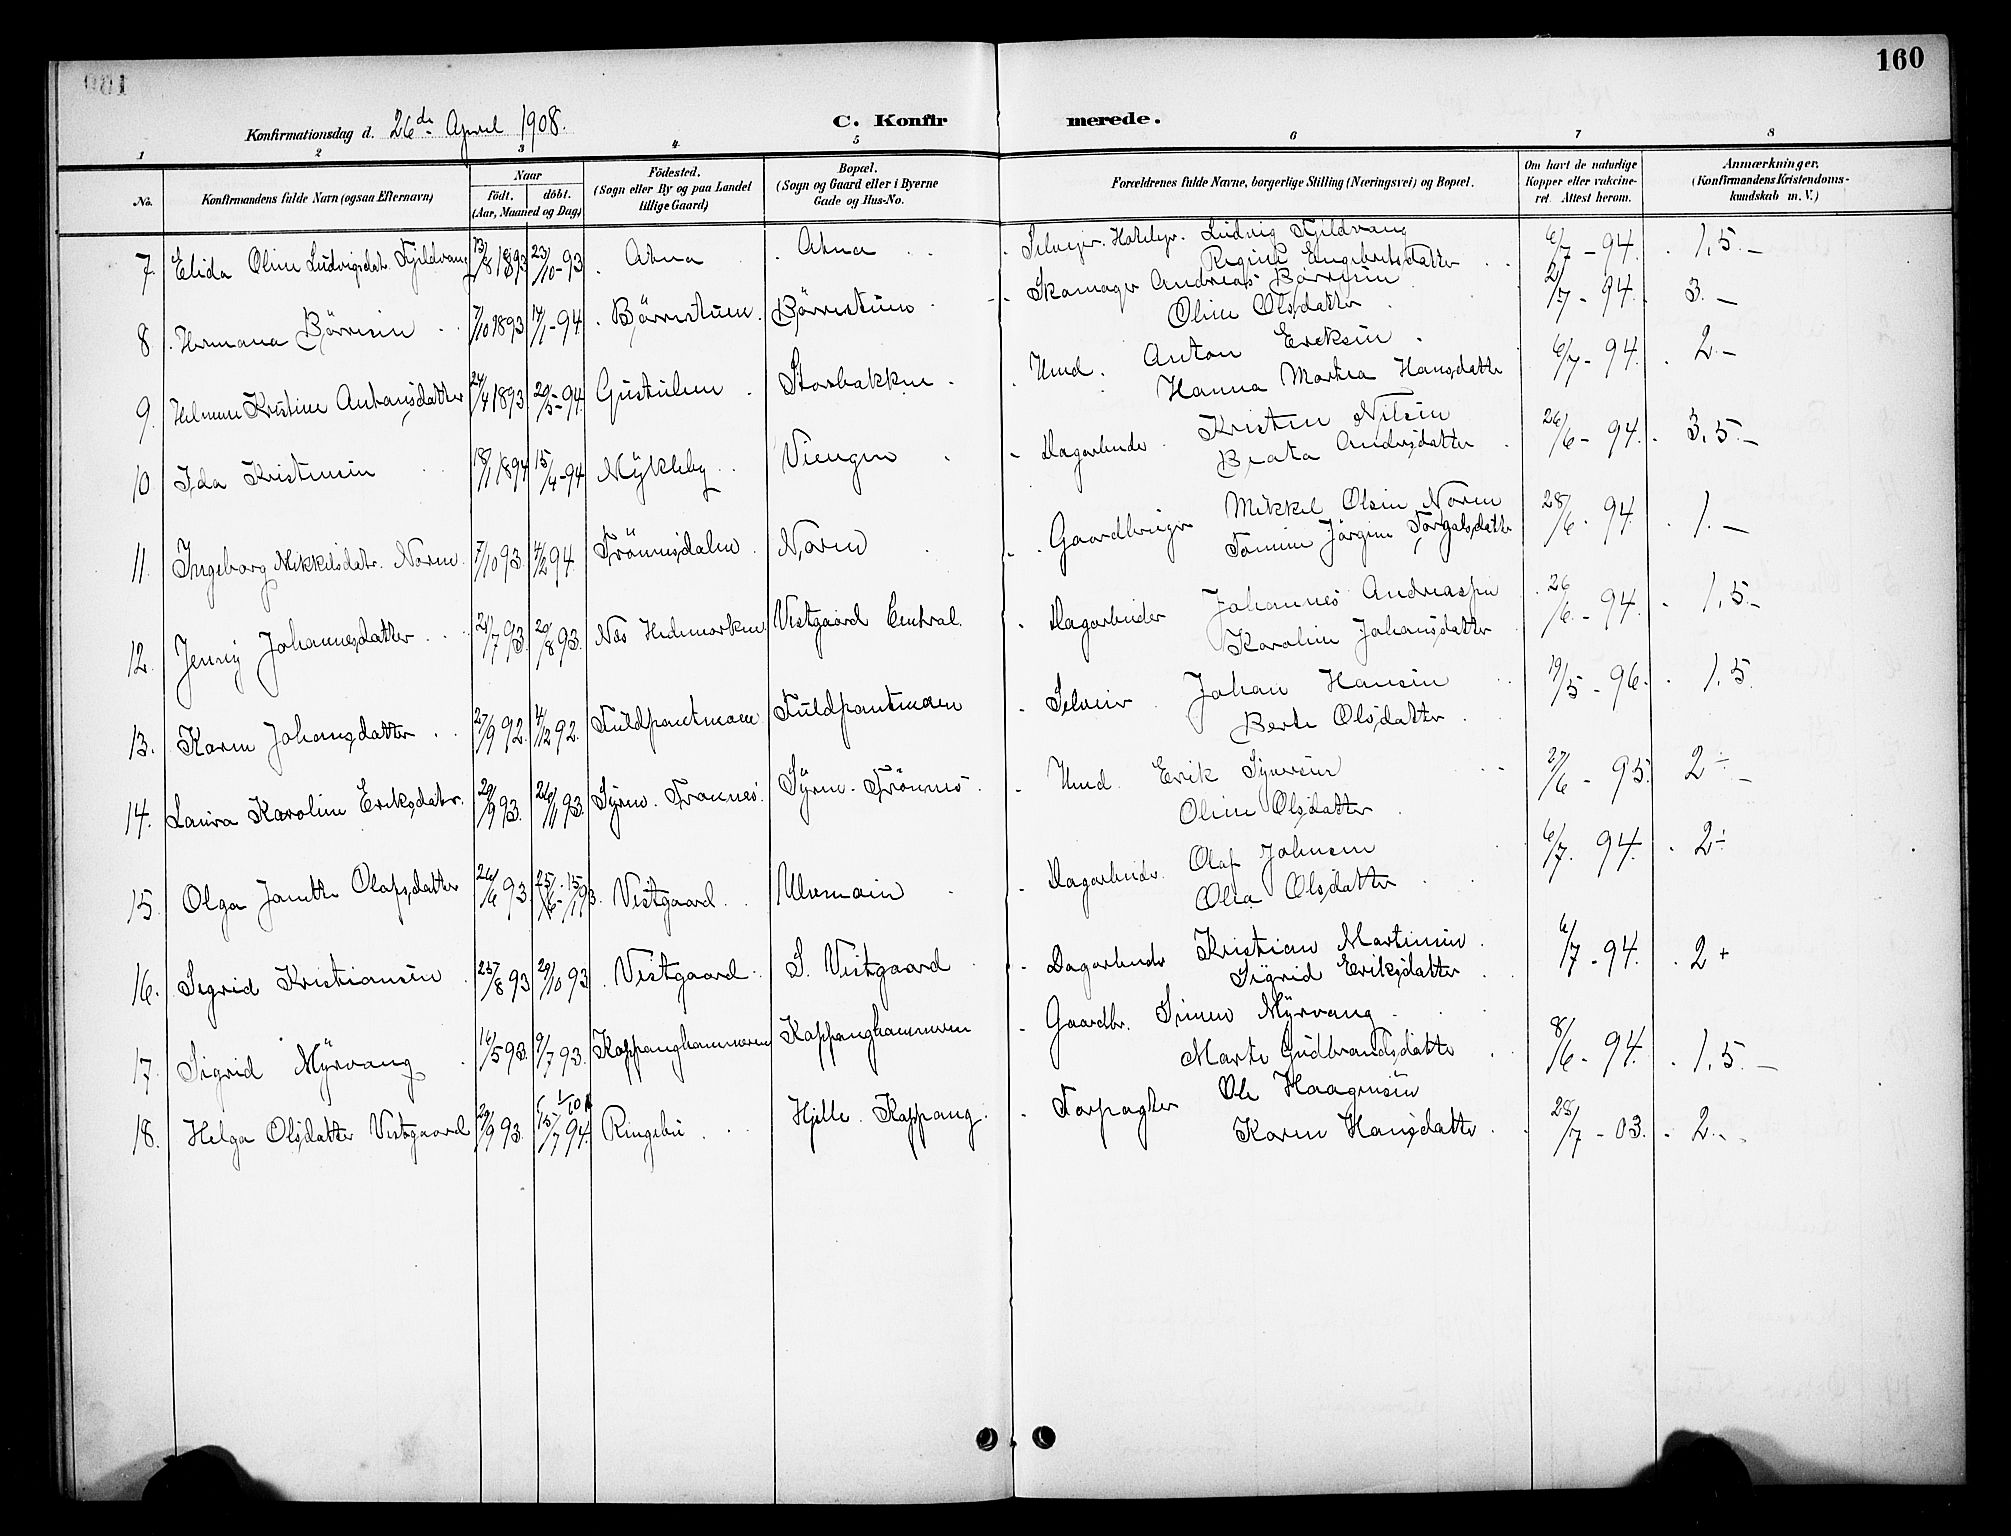 160
Konfirmationsdag d. 26de April 1908.
C. Konfirmerede.
1 2 3 4 5 6 7 8
No. Konfirmandens fulde Navn (ogsaa Efternavn) Naar født. døbt. (Aar, Maaned og Dag) Fødested. (Sogn eller By og paa Landet tillige Gaard) Bopæl. (Sogn og Gaard eller i Byerne Gade og Hus-No. Forældrenes fulde Navne, borgerlige Stilling (Næringsvei) og Bopæl. Om havt de naturlige Kopper eller vakcineret. Attest herom. Anmærkninger. (Konfirmandens Kristendomskundskab m. V.)
7 Elida Oline Ludvigsdatr. Kjeldvang 13/8 1893 23/10-93 Atna Atna Selveier. Hotelejr. Ludvig Kjeldvang 6/7-94. 1,5.-
Regine Engebretsdatter
8 Hermana Börresen 7/10 1893 14/1-94 Börrestuen Börrestuen Skomager Andreas Börresen 2/7-94. 3.-
Oline Olsdatter
9. Helmine Kristine Antonsdatter 24/4 1893 20/5-94 Gustuben Storbakken Umd. Anton Eriksen 6/7-94. 2.-
Hanna Martea Hansdatter
10 Ida Kristensen 18/1 1894 15/4-94 Mykleby Viengen Dagarbeider Kristen Nilsen 26/6-94. 3,5.-
Beata Andersdatter
11. Ingeborg Mikkelsdatr. Noren 7/10 93. 4/2 94 Trönnesdalen Noren Gaardbruger Mikkel Olsen Noren 28/6.94. 1.-
Tomine Jörgine Torgalsdatter
12. Jenny Johannesdatter 21/7 93. 20/8 93. Nes Hedemarken Vestgaard Central. Dagarbeider Johannes Andreassen 26/6.-94. 1,5.-
Karoline Johansdatter
13. Karen Johansdatter 27/9 92. 4/12 92. Fuldpantmoen Fuldpantmoen Selveier Johan Hansen 19/5-96. 1,5
Berte Olsdatter
14. Laura Karoline Eriksdatr. 29/9 93. 26/11 93. Syren. Trønnes. Syren. Trönnes. Umd. Erik Syversen 27/6-95. 2÷-
Oline Olsdatter
15. Olga Janette Olafsdatter 24/6 93 Vestgaard Ulvmoen Dagarbeider Olaf Johnsen 6/7.94. 2÷
Olea Olsdatter
16. Sigrid Kristiansen 25/8 93 29/10 93. Vestgaard S. Vestgaard Dagarbeider Kristian Martinsen 6/7-94. 2+
Sigrid Eriksdatter
17. Sigrid Myrvang 16/5 93. 9/7 93. Koppanghammeren Koppanghammeren Gaardbr. Simen Myrvang 8/6-94. 1,5.-
Marte Gudbrandsdatter
18. Helga Olsdatter Vestgaard 29/9 93. 15/7 94. Ringebu Hjelle. Koppang. Forpagter Ole Haagensen 28/7-03. 2.-
Karen Hansdatter